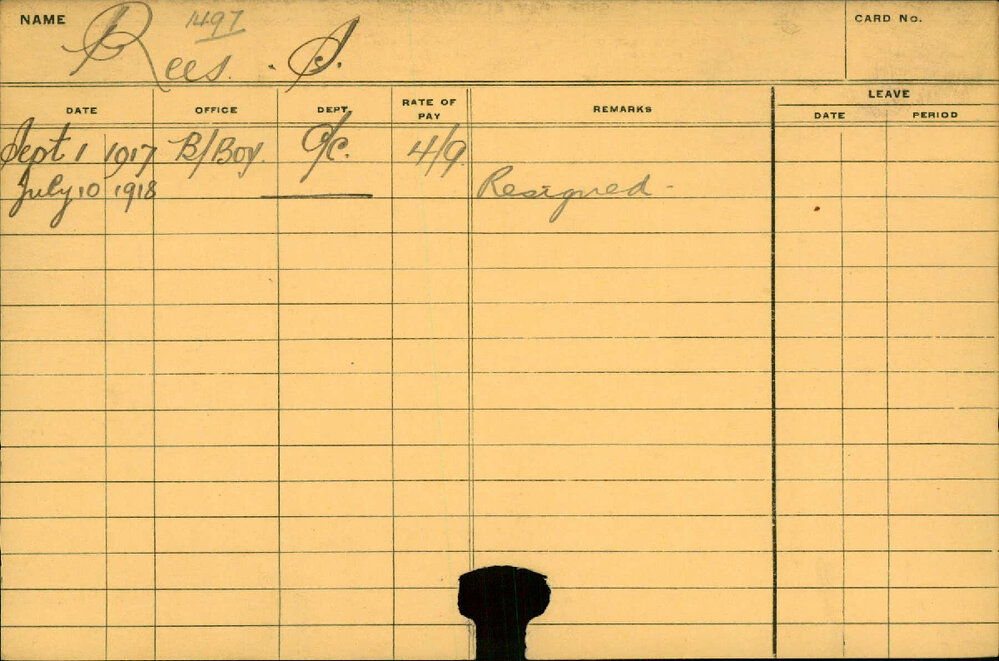 NAME 1497 CARD No.
Rees. S.
LEAVE
DATE OFFICE DEPT. RATE OF PAY REMARKS DATE PERIOD
Sept 1 1917 B/Boy. O/C. 4/9
July 10 1918 Resigned -